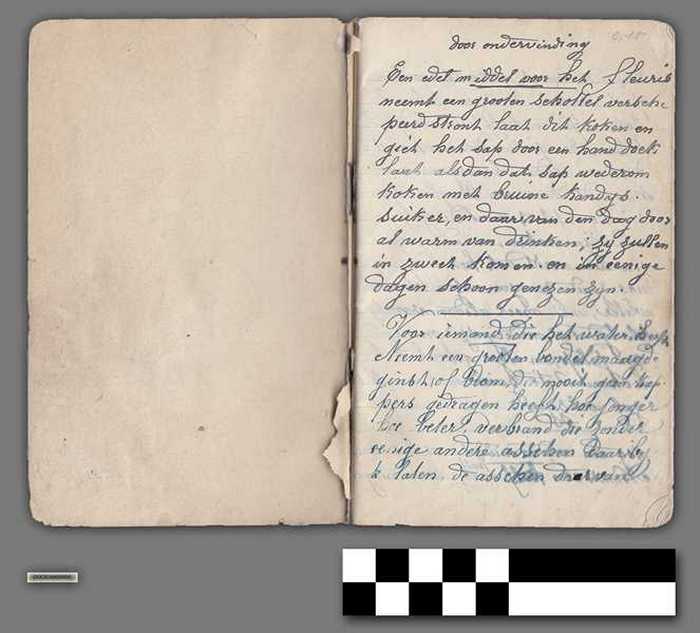 door ondervinding
Een edel middel voor het fleuris
neemt een grooten schottel versche
peerdstront laat dit koken en
giet het sap door een handdoek
laat alsdan dat sap wederom
koken met bruine kandys
suiker, en daar van den dag door
al warm van drinken; zy zullen
in zweet komen en in eenige
dagen schoon genezen zyn.
Voor iemand die het water heeft
Neemt een grooten bondel maagde
ginst of brom, die nooit geen kap
pers gedragen heeft, hoe jonger
hoe beter, verbrand die zonder
eenige andere asschen daar by
te laten de asschen daar van